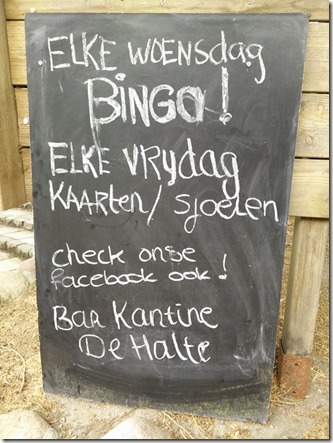 ELKE WOENSdAG
BiNGO!
ELKE VRydAG
KAARten/ Sjoelen
check onse
facebook ook!
Bar Kantine
De Halte